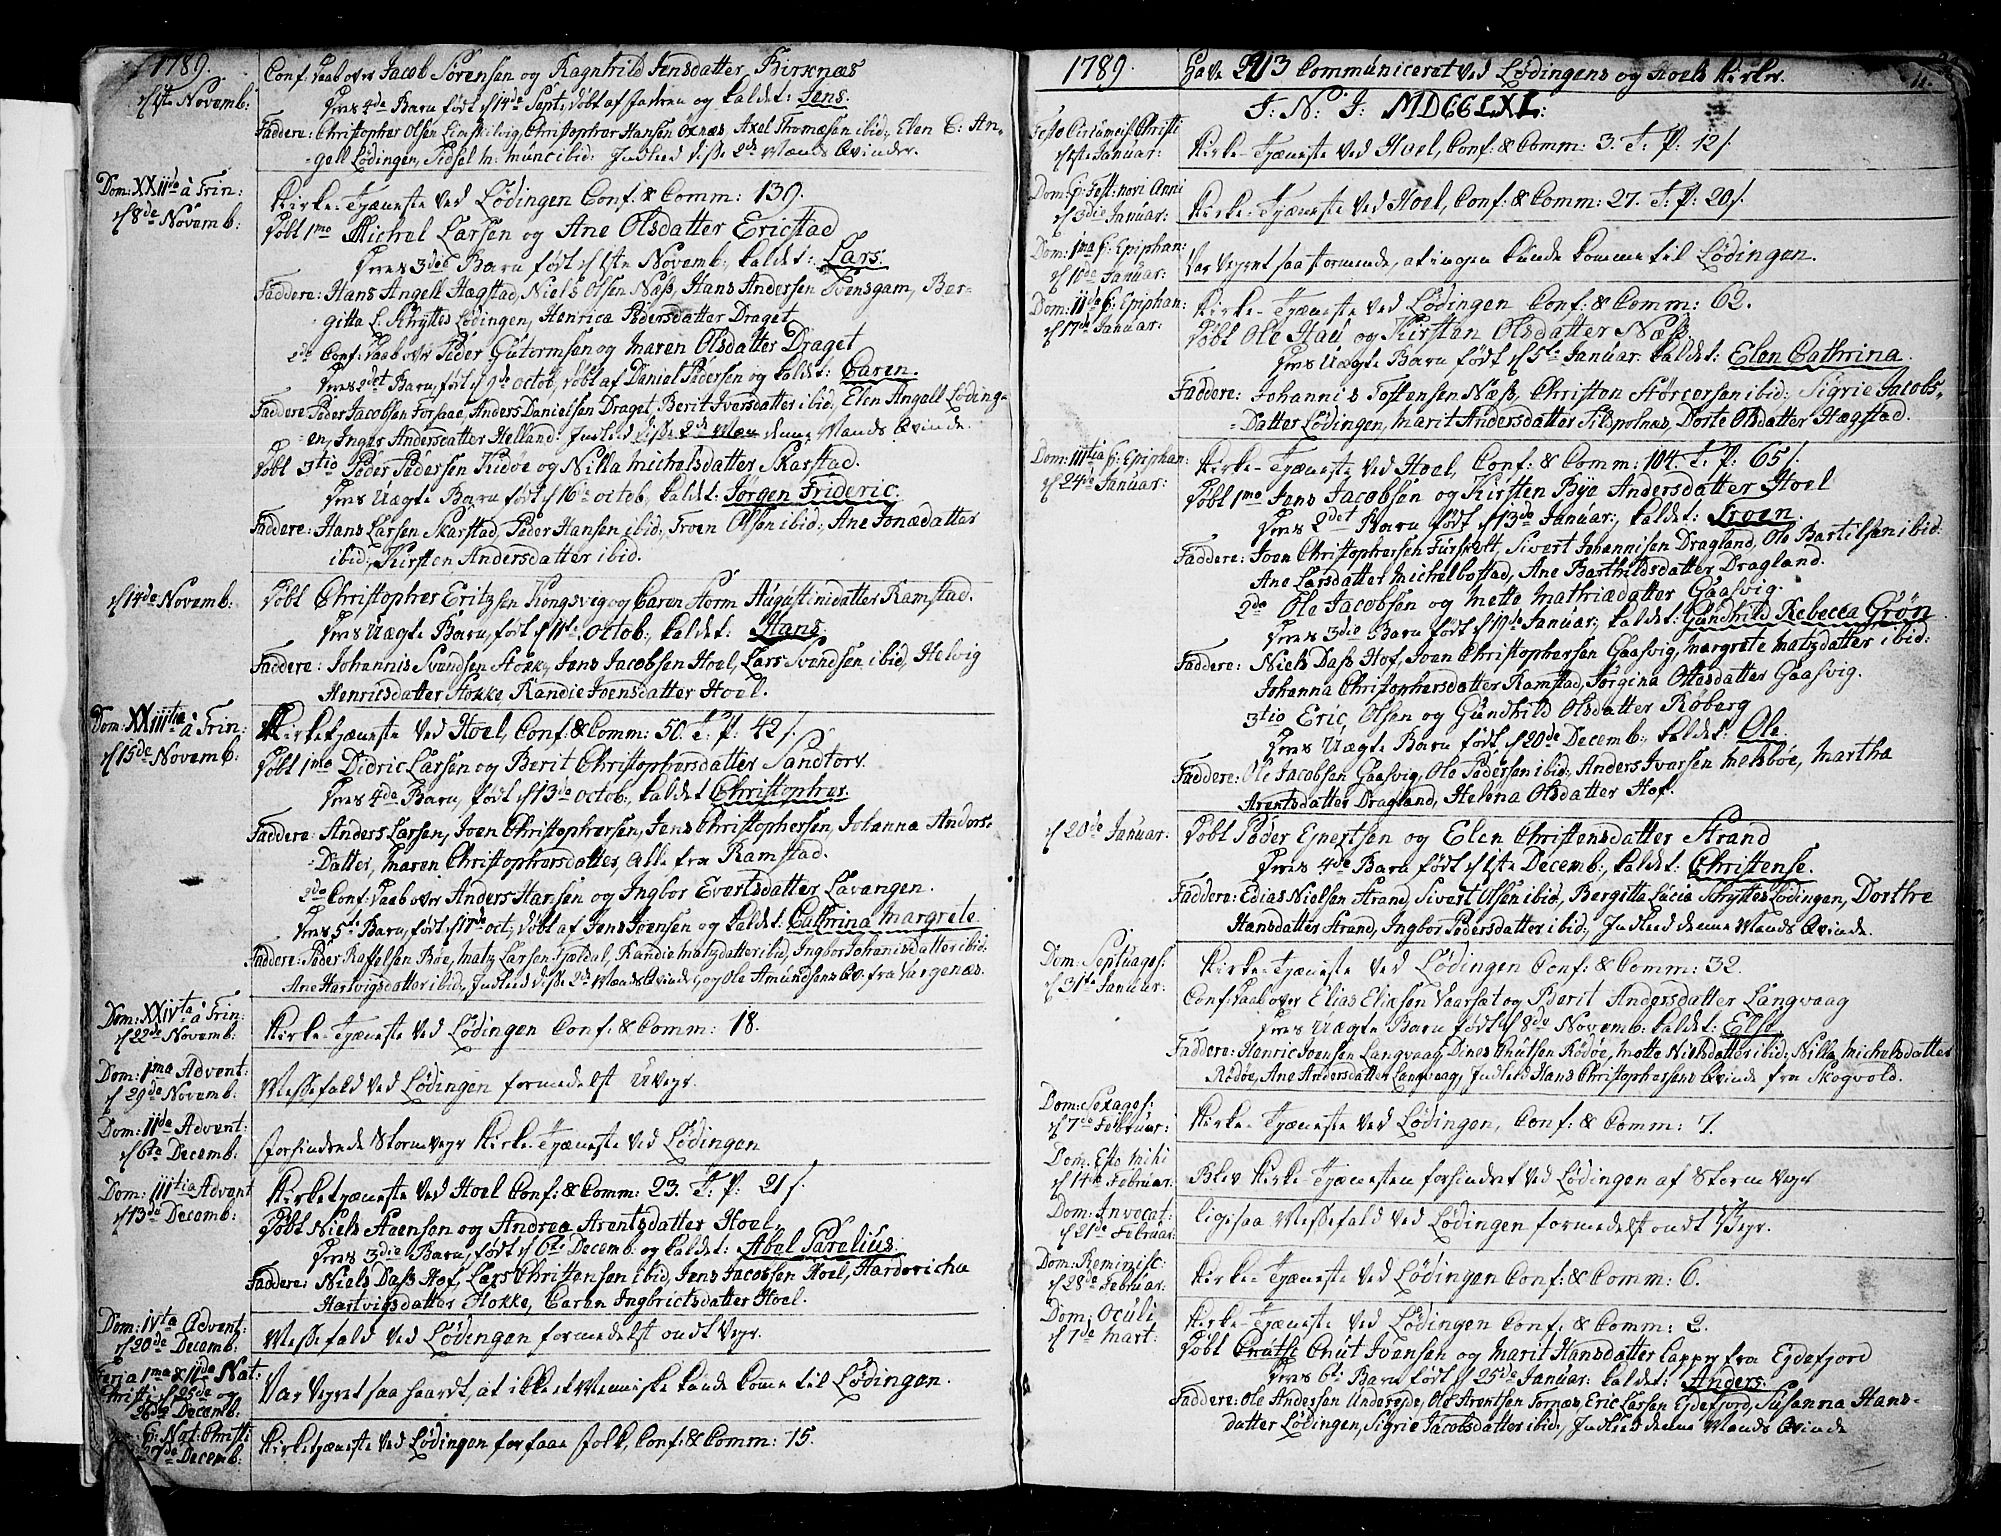 1789.
d 1ste Novemb:
Conf: Daab over Jacob Sörensen og Ragnhild Jensdatter Birxnæs
Dres 4de Barn født d 14de Sept: døbt af Faderen og kaldet: Jens.
Faddere: Christopher Olsen Christopher Hansen Öxnæs, Axel Thomæsen ibid:, Elen C: An-
gell Lödingen, Sidsel M: Munc ibid: Indled disse 2de Mænds Qvinder.
Dom: XXIIda à Trin:
d 8de Novemb:
Kirke-Tjæneste ved Lödingen Conf: & Comm: 139.
Døbt 1mo Michel Larsen og Ane Olsdatter Ericstad
Dres 3die Barn født d 1ste Novemb:, kaldet: Lars.
Faddere: Hans Angell Hægstad, Niels Olsen Næss, Hans Andersen Tvensgam, Ber-
gitta L. Schyttes Lödingen, Henrica Pedersdatter Draget
2de Conf: Daab over Peder Guttormsen og Maren Olsdatter Draget
Dres 2det Barn, født d 9de Octob:, døbt af Daniel Pedersen og kaldet: Caren.
Faddere: Peder Jacobsen Forsaae, Anders Danielsen Draget, Berit Iversdatter ibid:, Elen Angell Löding-
en, Inger Andersdatter Helland: Indled disse 2de Mæn denne Mands Qvinde.
Døbt 3tio Peder Pedersen Kidöe og Nilla Michelsdatter Skarstad.
Dres Uægte Barn født d 16de Octob:, kaldet: Jørgen Frideric.
Faddere: Hans Larsen Skarstad, Peder Hansen ibid:, Troen Olsen ibid:, Ane Jonædatter
ibid:, Kirsten Andersdatter ibid.
d 14de Novemb:
Døbt Christopher Eritzsen Kongsveg og Caren Storm Augustinidatter Ramstad.
Dres Uægte Barn, født d 11te Octob:, kaldet: Hans.
Faddere: Johannis Svendsen Stokk, Jens Jacobsen Hoel, Lars Svendsen ibid, Helvig
Henricsdatter Stokke Randie Joensdatter Hoel.
Dom: XXIIItia à Trin:
d 15de Novemb:
Kirketjæneste ved Hoel, Conf: & Comm: 50. T: P: 42 s.
Døbt 1mo Didric Larsen og Berit Christophersdatter Sandtorv
Dres 4de Barn, født d 13de Octob:, kaldet Christopher
Faddere: Anders Larsen, Joen Christophersen, Jens Christophersen, Johanna Anders-
Datter, Maren Christophersdatter, alle fra Ramstad.
2do Conf: Daab over Anders Harsen og Ingbor Evertsdatter Lavangen.
Dres 5te Barn, født d 17de Oct:, døbt af Jens Joensen og kaldet: Cathrina Margrete
Faddere: Peder Rafelsen Böe, Matz Larsen Fjeldal, Randie Matzdatter ibid, Ingbor Johanisdatter ibid:
Ane Hartvigsdatter ibid:, Indled disse 2de Mænds Qvinder, og Ole Amundsens Qv: fra Vargenæs.
Dom: XXIVta à Trin:
d 22de Novemb:
Kirke-Tjæneste ved Lödingen Conf: & Comm: 18.
Dom: 1ma Advent:
d 29de Novemb:
Messefald ved Lödingen formedelst Uveyr.
Dom: IIda Advent:
d 6te Decemb:
forhindrede Stormveyr Kirke-Tjæneste ved Lödingen
Dom: IIItia Advent
d 13de Decemb:
Kirketjæneste ved Hoel Conf: & Comm: 23. T: P: 21 s.
Døbt Niels Steensen og Andrea Arentsdatter Hoel,
Dres 3die Barn, født d 6te Decemb: og kaldet: Abel Parelius.
Faddere: Niels Dass Hof, Lars Christensen ibid, Jens Jacobsen Hoel, Hardericha
Hartvigsdatter Stokke, Caren Ingbrictsdatter Hoel.
Dom: IVta Advent:
d 20de Decemb:
Messefald ved Lödingen formedelst ondt Veyr.
Feria 1ma & IIda Nat:
Christi d 25de og
26de Decemb:
Var Veyret saa haardt, at ikke et Menniske kunde komme til Lödingen.
Nat: Christi
27de Decemb:
Kirketjæneste ved Lödingen for faae Folk, Conf: & Comm: 15.
1789.
Have 2913 Communiceret ved Lödingens og Hoels Kirker.
11.
I: N: J: MDCCLXL:
Festo Circumcis: Christi
d 1ste Januar:
Kirke-Tjæneste ved Hoel, Conf: & Comm: 3. T: P: 12 s.
Dom: p: Fest: novi Anni
d 3die Januar:
Kirke-Tjæneste ved Hoel, Conf: & Comm: 27. T: P: 20 s.
Dom: 1ma p: Epiphan:
d 10de Januar:
Var Veyret saa stormende, at ingen kunde komme til Lödingen.
Dom: IIda p: Epiphan:
d 17de Januar:
Kirke-Tjæneste ved Lödingen Conf: & Comm: 62.
Døbt Ole Hau og Kirsten Olsdatter Næss
Dres Uægte Barn født d 5te Januar: kaldet: Elen Cathrina.
Faddere: Johannis Tostensen Næss, Christen Störcersen ibid:, Sigrie Jacobs-
Datter Lödingen, Marit Andersdatter Sildpolnæs, Dorte Olsdatter Hægstad.
Dom: IIItia p: Epiphan:
d 24de Januar:
Kirke-Tjæneste ved Hoel, Conf: & Comm: 104. T: P: 65 s.
Døbt 1mo Jens Jacobsen og Kirsten Bye Andersdatter Hoel
Dres 2det Barn født d 13de Januar:, kaldet: Troen.
Faddere: Joen Christophersen Furskott, Sivert Johannisen Dragland, Ole Bartilsen ibid:
Ane Larsdatter Michelbostad, Ane Barthildsdatter Dragland.
2do Ole Jacobsen og Mette Mathiædatter Gaasvig.
Dres 3die Barn født d 19de Januar, kaldet: Gundhild Rebecca Grön
Faddere: Niels Dass Hof, Joen Christophersen Gaasvig, Margrete Matzdatter ibid:
Johanna Christophersdatter Ramstad, Jørgina Ottesdatter Gaasvig.
3tio Eric Olsen og Gundhild Olsdatter Röberg
Dres Uægte Barn født d 20de Decemb:, kaldet: Ole
Faddere: Ole Jacobsen Gaasvig, Ole Pedersen ibid:, Anders Ivarsen Melsböe, Martha
Arentsdatter Dragland, Helena Olsdatter Hof.
d 20de Januar:
Døbt Peder Ejertsen og Elen Christensdatter Strand
Dres 4de Barn født d 1ste Decemb:, kaldet: Christense.
Faddere: Edias Nielsen Strand, Sivert Olsen ibid, Bergitta Lucia Schyttes Lödingen, Dorthe
Hansdatter Strand, Ingbor Pedersdatter ibid:, Indled denne Mands Qvinde.
Dom: Septuages:
d 31te Januar:
Kirke-Tjæneste ved Lödingen Conf: & Comm: 32.
Conf: Daab over Elias Eliæsen Vaarsæt og Berit Andersdatter Langvaag
Dres Uægte Barn født d 8de Novemb: kaldet: Else.
Faddere: Henric Joensen Langvaag, Dines Knutsen Rödöe, Mette Nielsdatter ibid:, Nilla Michelsdatter
Rödöe, Ane Andersdatter Langvaag, Indled Hans Christophersens Qvinde fra Skogvold.
Dom: Sexages:
d 7de Februar:
Kirke-Tjæneste ved Lödingen, Conf: & Comm: 7.
Dom: Esto Mihi
d 14de Februar:
Blev Kirke-Tjænesten forhindret ved Lödingen af Storm Veyr
Dom: Invocat:
d 21de Februar:
ligesaa Messefald ved Lödingen formedelst ondt Veyr.
Dom: Reminisc:
d 28de Februar:
Kirke-Tjæneste ved Lödingen Conf: & Comm: 6.
Dom: Oculi
d 7de Mart:
Kirke-Tjæneste ved Lödingen Conf: & Comm: 2.
Døbt Cnut Ivensen og Marit Hansdatter Lapper fra Egdefjord
Dres 6te Barn født d 25de Januar: kaldet: Anders.
Faddere: Ole Andersen Ole Arentsen Tornæs, Eric Larsen Egdefjord, Susanna Hans-
datter Lödingen, Sigrie Jacobsdatter ibid:, Indled denne Mands Qvinde